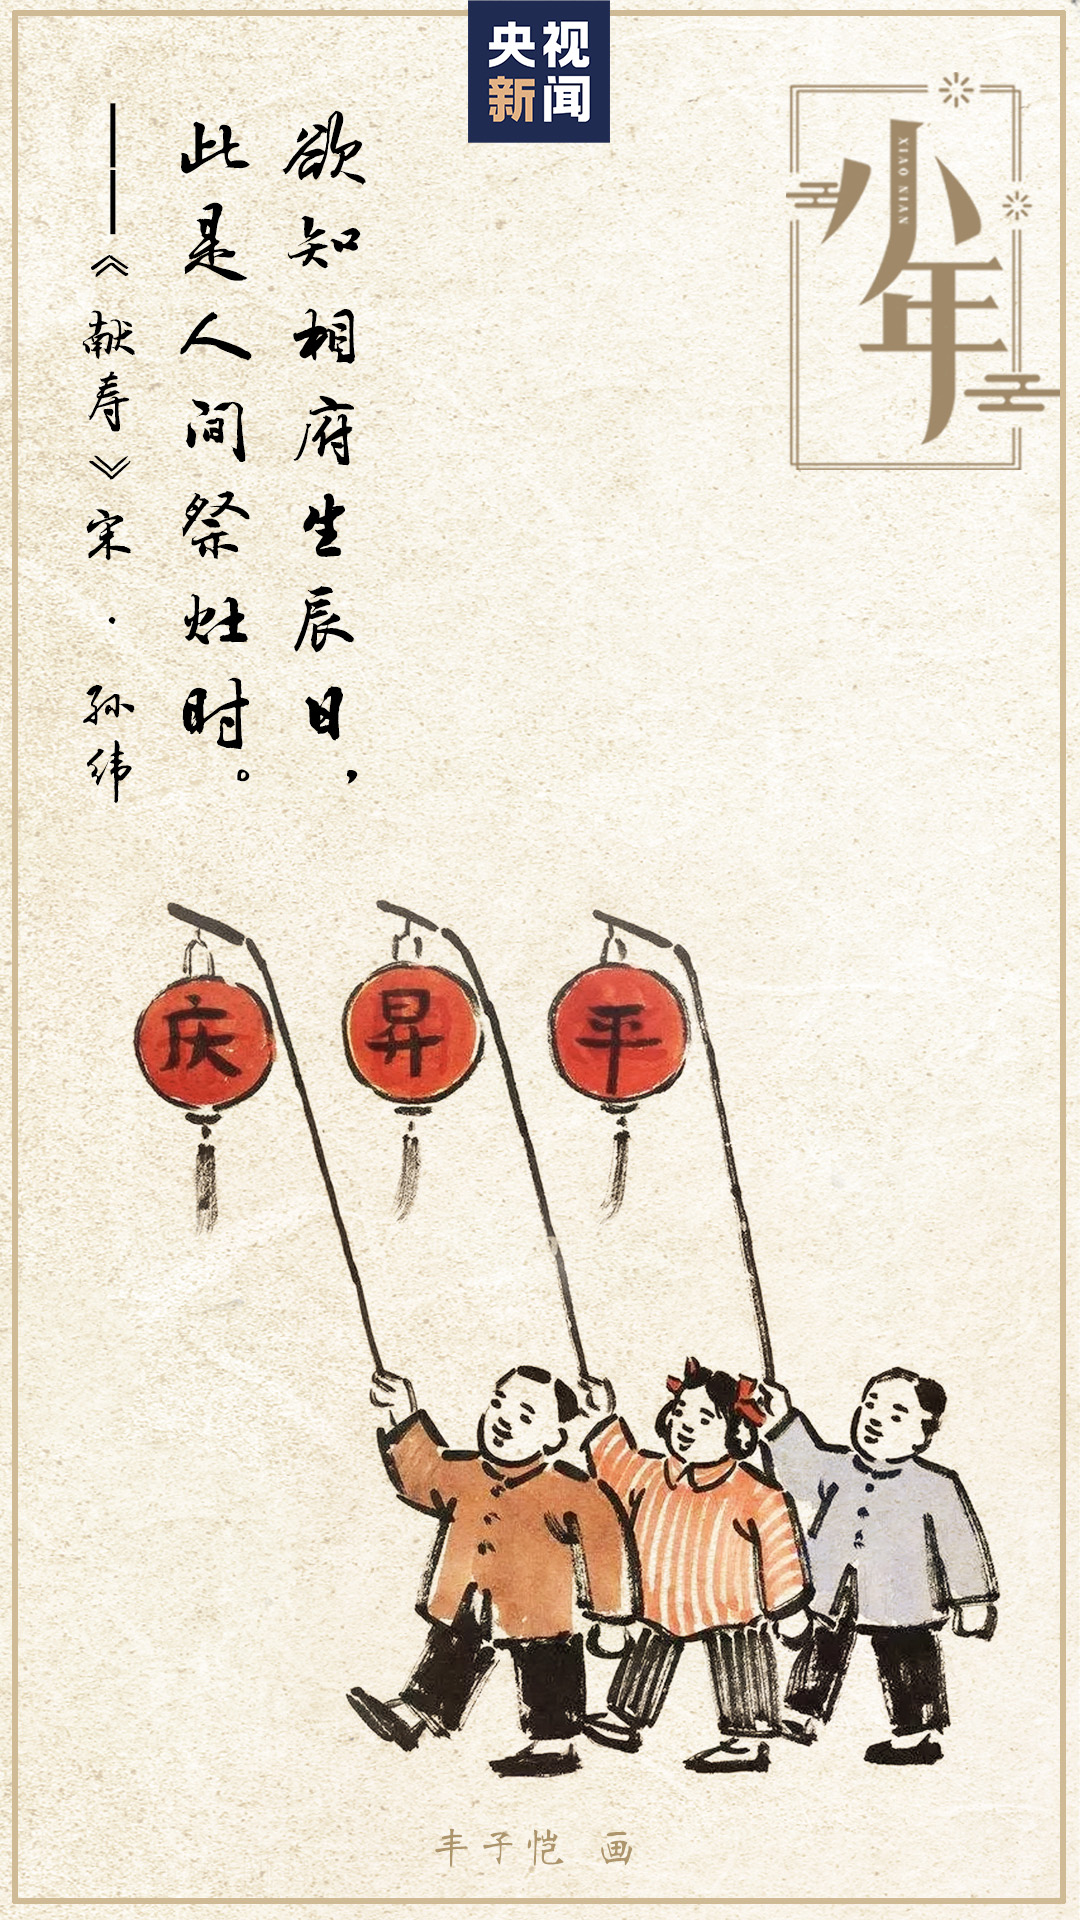 央视
新闻
小年
XIAO NIAN
欲知相府生辰日，
此是人间祭灶时。
——《献寿》宋·孙纬
庆昇平
丰子恺 画